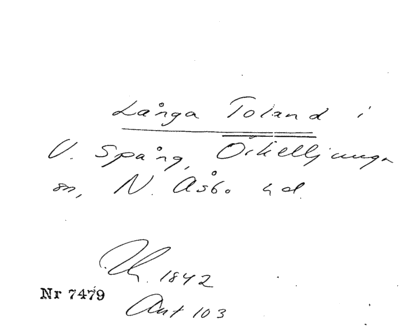 Långa Toland i
V. Spång, Örkelljunga
sn, N. Åsbo hd.
1842
Nr 7479
Akt 103